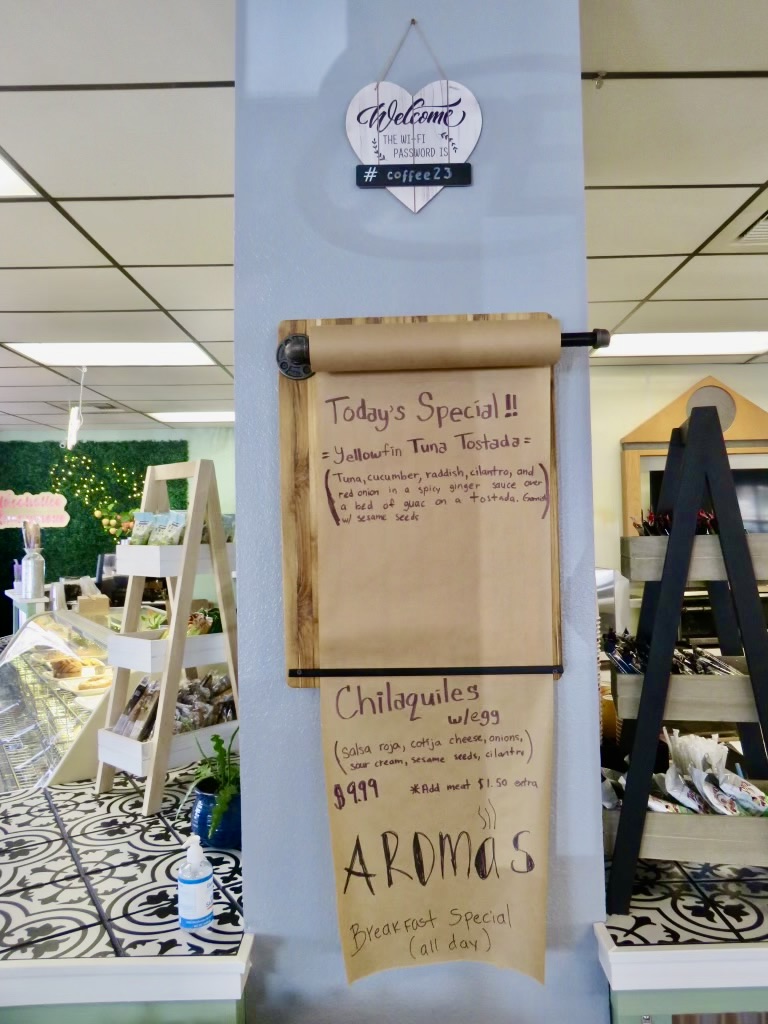 Welcome
THE WI-FI
PASSWORD IS
# coffee23
Today's Special!!
=Yellowfin Tuna Tostada=
(Tuna, cucumber, raddish, cilantro, and
red onion in a spicy ginger sauce over
a bed of guac on a tostada.
w/ sesame seeds)
Chilaquiles
w/egg
(Salsa roja, cotija cheese, onions,
sour cream, sesame seeds, cilantro)
$9.99 *Add meat $1.50 extra
AROMAS
Breakfast Special
(all day)